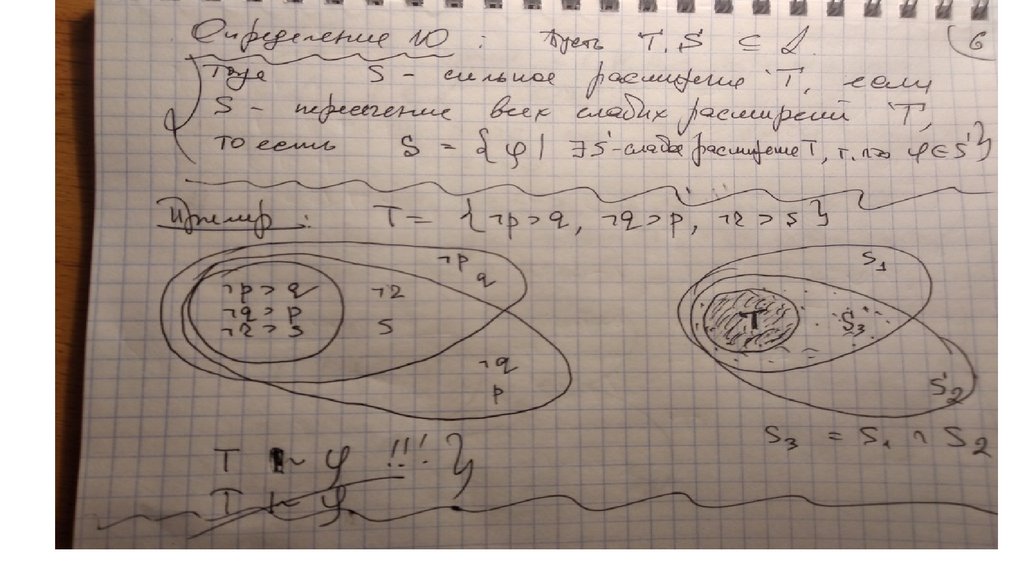 Определение 10 : Пусть T, S ⊆ L.
6
Тогда S - сильное расширение T, если
S - пересечение всех слабых расширений T,
то есть S = {φ | ∃ S'-слабое расширение T, т.что φ ∈ S'}
Пример : T = {¬p > q, ¬q > p, ¬r > s}
¬p > q
¬q > p
¬r > s
¬r
s
¬p
q
¬q
p
S₁
T
S₃
S₂
S₃ = S₁ ∩ S₂
T |~ φ !!! }
T |~ φ